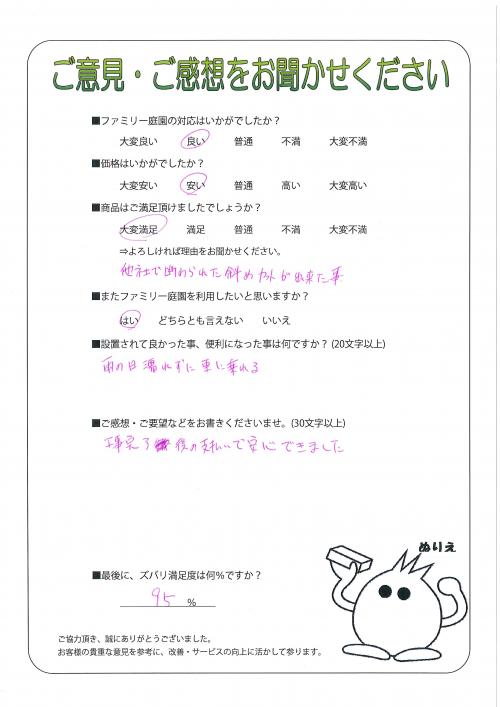 ご意見・ご感想をお聞かせください
■ファミリー庭園の対応はいかがでしたか？
大変良い 良い 普通 不満 大変不満
■価格はいかがでしたか？
大変安い 安い 普通 高い 大変高い
■商品はご満足頂けましたでしょうか？
大変満足 満足 普通 不満 大変不満
⇒よろしければ理由をお聞かせください。
他社で断わられた斜めカットが出来た事
■またファミリー庭園を利用したいと思いますか？
はい どちらとも言えない いいえ
■設置されて良かった事、便利になった事は何ですか？(20文字以上)
雨の日濡れずに車に乗れる
■ご感想・ご要望などをお書きくださいませ。(30文字以上)
工事完了後の支払いで安心できました
ぬりえ
■最後に、ズバリ満足度は何%ですか？
95 %
ご協力頂き、誠にありがとうございました。
お客様の貴重な意見を参考に、改善・サービスの向上に活かして参ります。